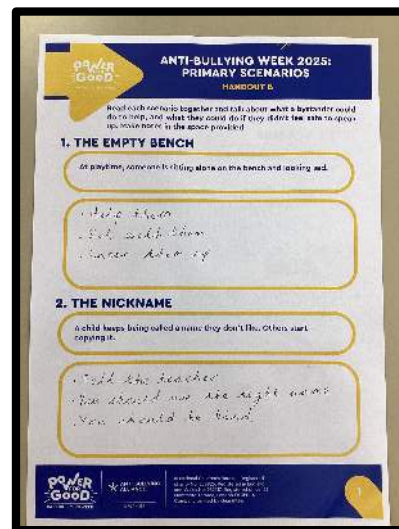 POWER FOR GOOD
ANTI-BULLYING WEEK 2025:
PRIMARY SCENARIOS
HANDOUT B
Read each scenario together and talk about what a bystander could
do to help, and what they could do if they didn't feel safe to speak
up. Make notes in the space provided
1. THE EMPTY BENCH
At playtime, someone is sitting alone on the bench and looking sad.
· Help them
· with them
· them up
2. THE NICKNAME
A child keeps being called a name they don't like. Others start
copying it.
· Tell the teacher
· You should use the right name
· You should be kind
POWER FOR GOOD
ANTI-BULLYING
ALLIANCE
1